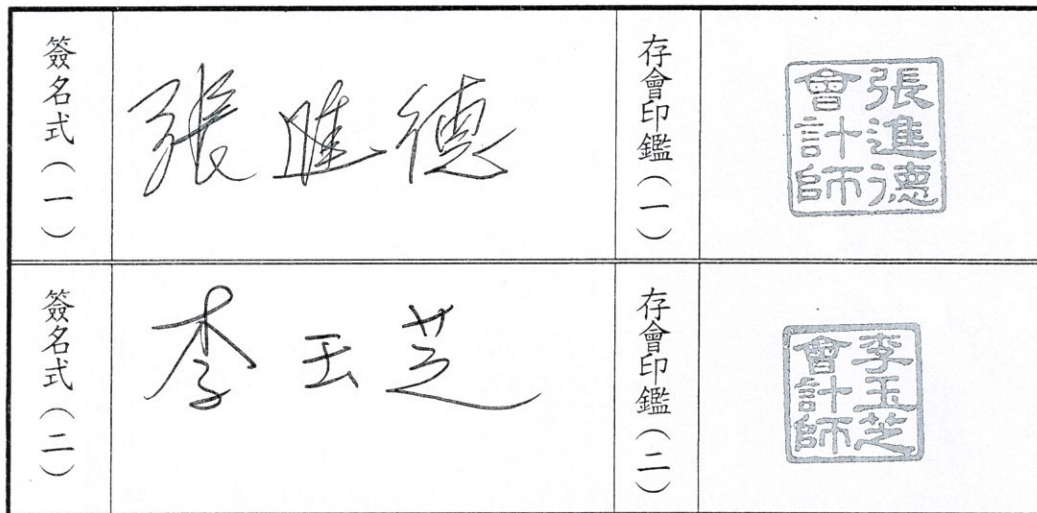 簽名式（一）
張進德
存會印鑑（一）
張進德
會計師
簽名式（二）
李玉芝
存會印鑑（二）
李玉芝
會計師